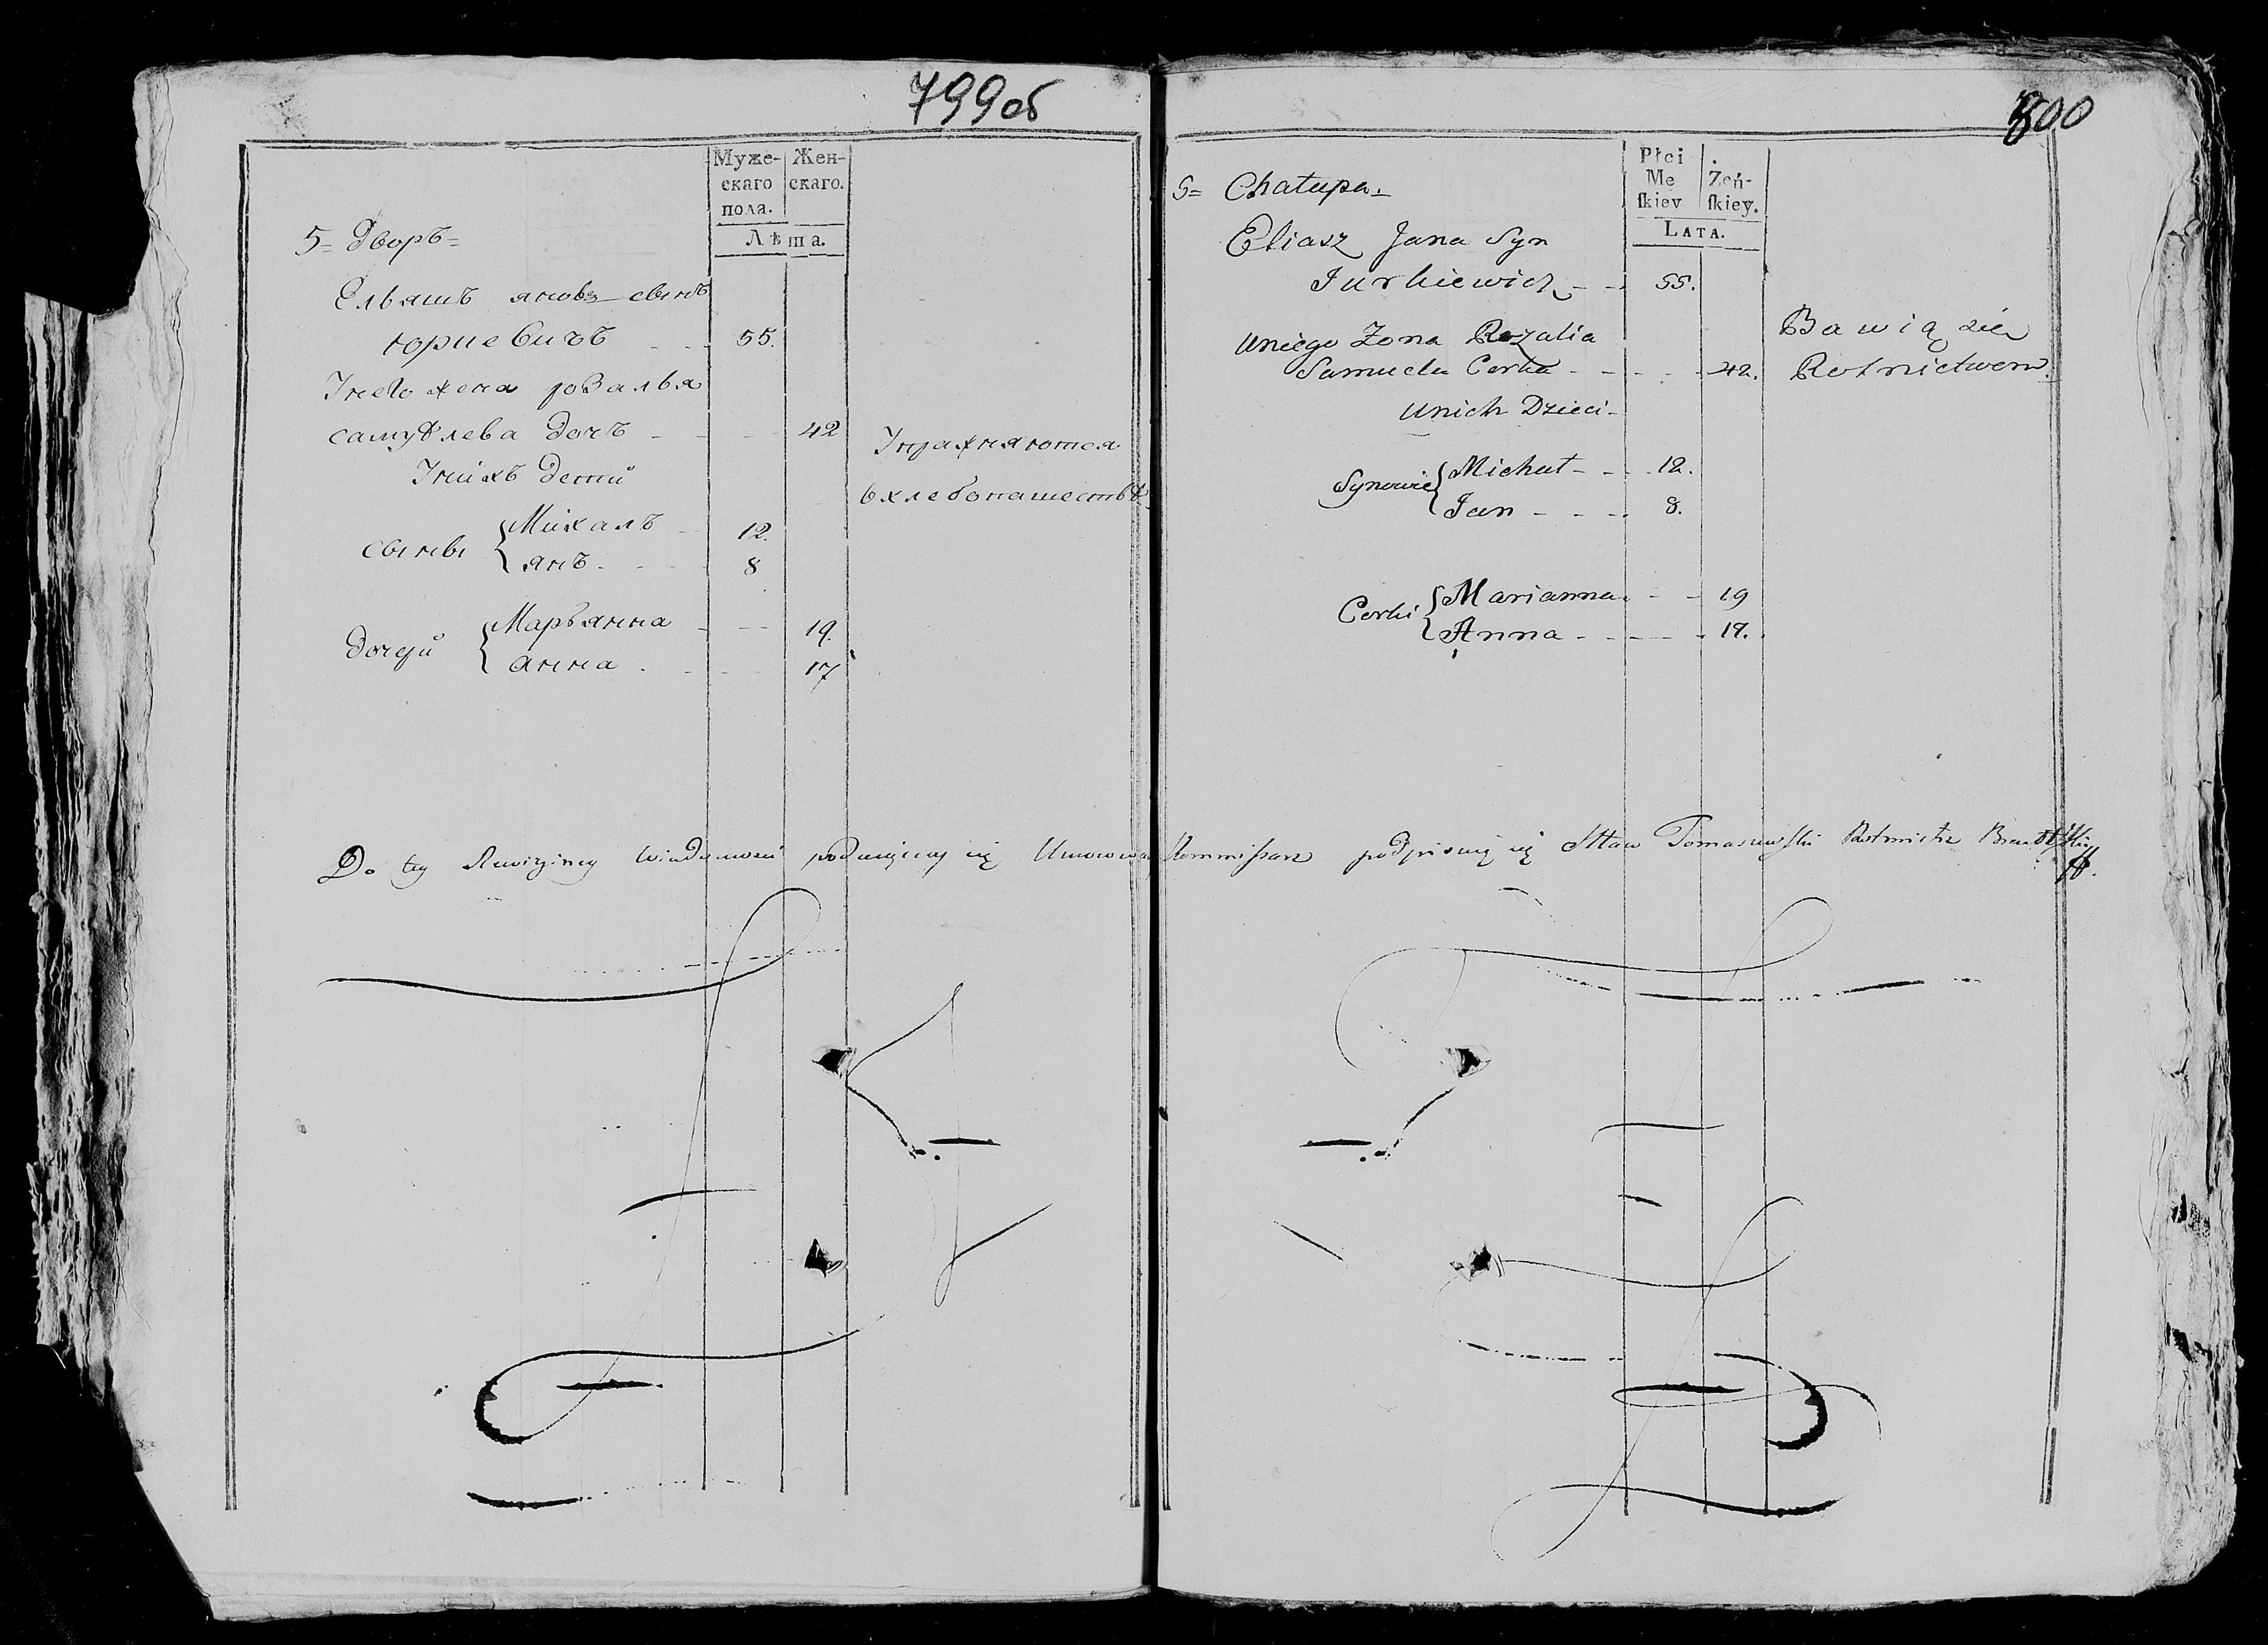 799об
Муже- Жен-
скаго скаго.
пола.
Лѣта.
5= Дворъ=
Ельяшъ яновъ сынъ
юркевичъ - - - 55.
Унего жена розалья
самуѣлева дочь - - - 42
Унихъ дети
Упражняются
вхлебопашествѣ
сыны { Михалъ - 12.
янъ - - - 8
дочери { Марьянна - - - 19.
анна - - - 17
800
Płci
Mę
ſkiey
Żeń-
ſkiey.
LATA.
5= Chałupa.=
Eliasz Jana Syn
Jurkiewicz - - 55.
Uniego Żona Rozalia
Samuela Corka - - - - 42.
Bawią się
Rolnictwem.
Unich Dzieci -
Synowie { Michał - - - 12.
Jan - - - - 8.
Corki { Marianna - - 19
Anna - - - - - 17.
Do tey Rewizyiney Wiadomosci podpisuię się Tomaszewski Rotmistrz